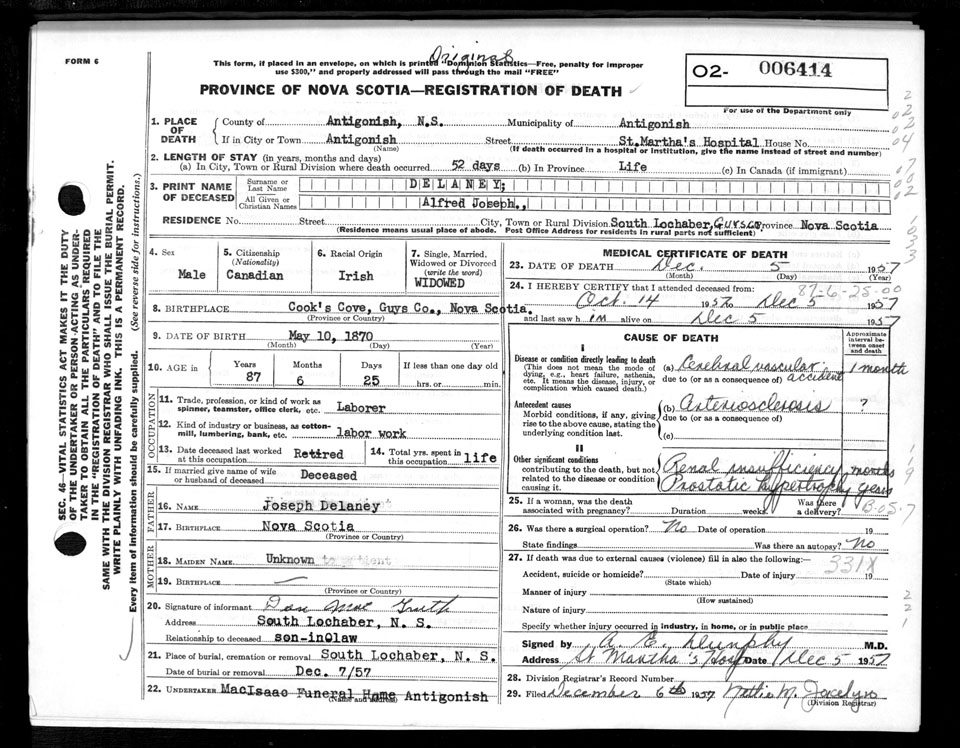 FORM 6
Original
This form, if placed in an envelope, on which is printed "Dominion Statistics—Free, penalty for improper
use $300," and properly addressed will pass through the mail "FREE"
PROVINCE OF NOVA SCOTIA—REGISTRATION OF DEATH
02- 006414
For use of the Department only
1. PLACE OF DEATH
County of Antigonish, N.S. Municipality of Antigonish
If in City or Town Antigonish Street St.Martha's Hospital House No.
(Name) (If death occurred in a hospital or institution, give the name instead of street and number)
2. LENGTH OF STAY (in years, months and days)
(a) In City, Town or Rural Division where death occurred 52 days (b) In Province Life (c) In Canada (if immigrant)
3. PRINT NAME OF DECEASED
Surname or Last Name DELANEY;
All Given or Christian Names Alfred Joseph.,
RESIDENCE No. Street City, Town or Rural Division South Lochaber, Guysco Province Nova Scotia
(Residence means usual place of abode. Post Office Address for residents in rural parts not sufficient)
4. Sex Male
5. Citizenship (Nationality) Canadian
6. Racial Origin Irish
7. Single, Married, Widowed or Divorced (write the word) WIDOWED
8. BIRTHPLACE Cook's Cove, Guys Co., Nova Scotia.
(Province or Country)
9. DATE OF BIRTH May 10, 1870
(Month) (Day) (Year)
10. AGE in Years Months Days If less than one day old
87 6 25 hrs. or min.
OCCUPATION
11. Trade, profession, or kind of work as spinner, teamster, office clerk, etc. Laborer
12. Kind of industry or business, as cotton-mill, lumbering, bank, etc. labor work
13. Date deceased last worked at this occupation Retired
14. Total yrs. spent in this occupation life
15. If married give name of wife or husband of deceased Deceased
FATHER
16. NAME Joseph Delaney
17. BIRTHPLACE Nova Scotia
(Province or Country)
MOTHER
18. MAIDEN NAME Unknown
19. BIRTHPLACE —
(Province or Country)
20. Signature of informant Dan Mac
Address South Lochaber, N. S.
Relationship to deceased son-in0law
21. Place of burial, cremation or removal South Lochaber, N. S.
Date of burial or removal Dec. 7/57
22. UNDERTAKER MacIsaac Funeral Home Antigonish
(Name and address)
MEDICAL CERTIFICATE OF DEATH
23. DATE OF DEATH Dec. 5 1957
(Month) (Day) (Year)
87-6-25-00
24. I HEREBY CERTIFY that I attended deceased from:
Oct. 14 1957 to Dec 5 1957
and last saw him alive on Dec 5 1957
CAUSE OF DEATH
Approximate interval between onset and death
I
Disease or condition directly leading to death
(This does not mean the mode of dying, e.g., heart failure, asthenia, etc. It means the disease, injury, or complication which caused death.)
(a) Cerebral vascular accident 1 month
due to (or as a consequence of)
Antecedent causes
Morbid conditions, if any, giving rise to the above cause, stating the underlying condition last.
(b) Arteriosclerosis ?
due to (or as a consequence of)
(c)
II
Other significant conditions
contributing to the death, but not related to the disease or condition causing it.
Renal insufficiency months
Prostatic hypertrophy years
25. If a woman, was the death associated with pregnancy? Duration weeks. Was there a delivery?
B-05-7
26. Was there a surgical operation? No Date of operation 19
State findings Was there an autopsy? No
27. If death was due to external causes (violence) fill in also the following:—
331X
Accident, suicide or homicide? Date of injury 19
(State which)
Manner of injury
(How sustained)
Nature of injury
Specify whether injury occurred in industry, in home, or in public place
Signed by A. E. Dunphy M.D.
Address St Martha's Hosp Date Dec 5 1957
28. Division Registrar's Record Number
29. Filed December 6th 1957 Nettie M. Jocelyn
(Division Registrar)
SEC. 46—VITAL STATISTICS ACT MAKES IT THE DUTY
OF THE UNDERTAKER OR PERSON ACTING AS UNDER-
TAKER TO OBTAIN ALL THE PARTICULARS REQUIRED
IN THE "REGISTRATION OF DEATH" AND TO FILE THE
SAME WITH THE DIVISION REGISTRAR WHO SHALL ISSUE THE BURIAL PERMIT.
WRITE PLAINLY WITH UNFADING INK. THIS IS A PERMANENT RECORD.
Every item of information should be carefully supplied. (See reverse side for instructions.)